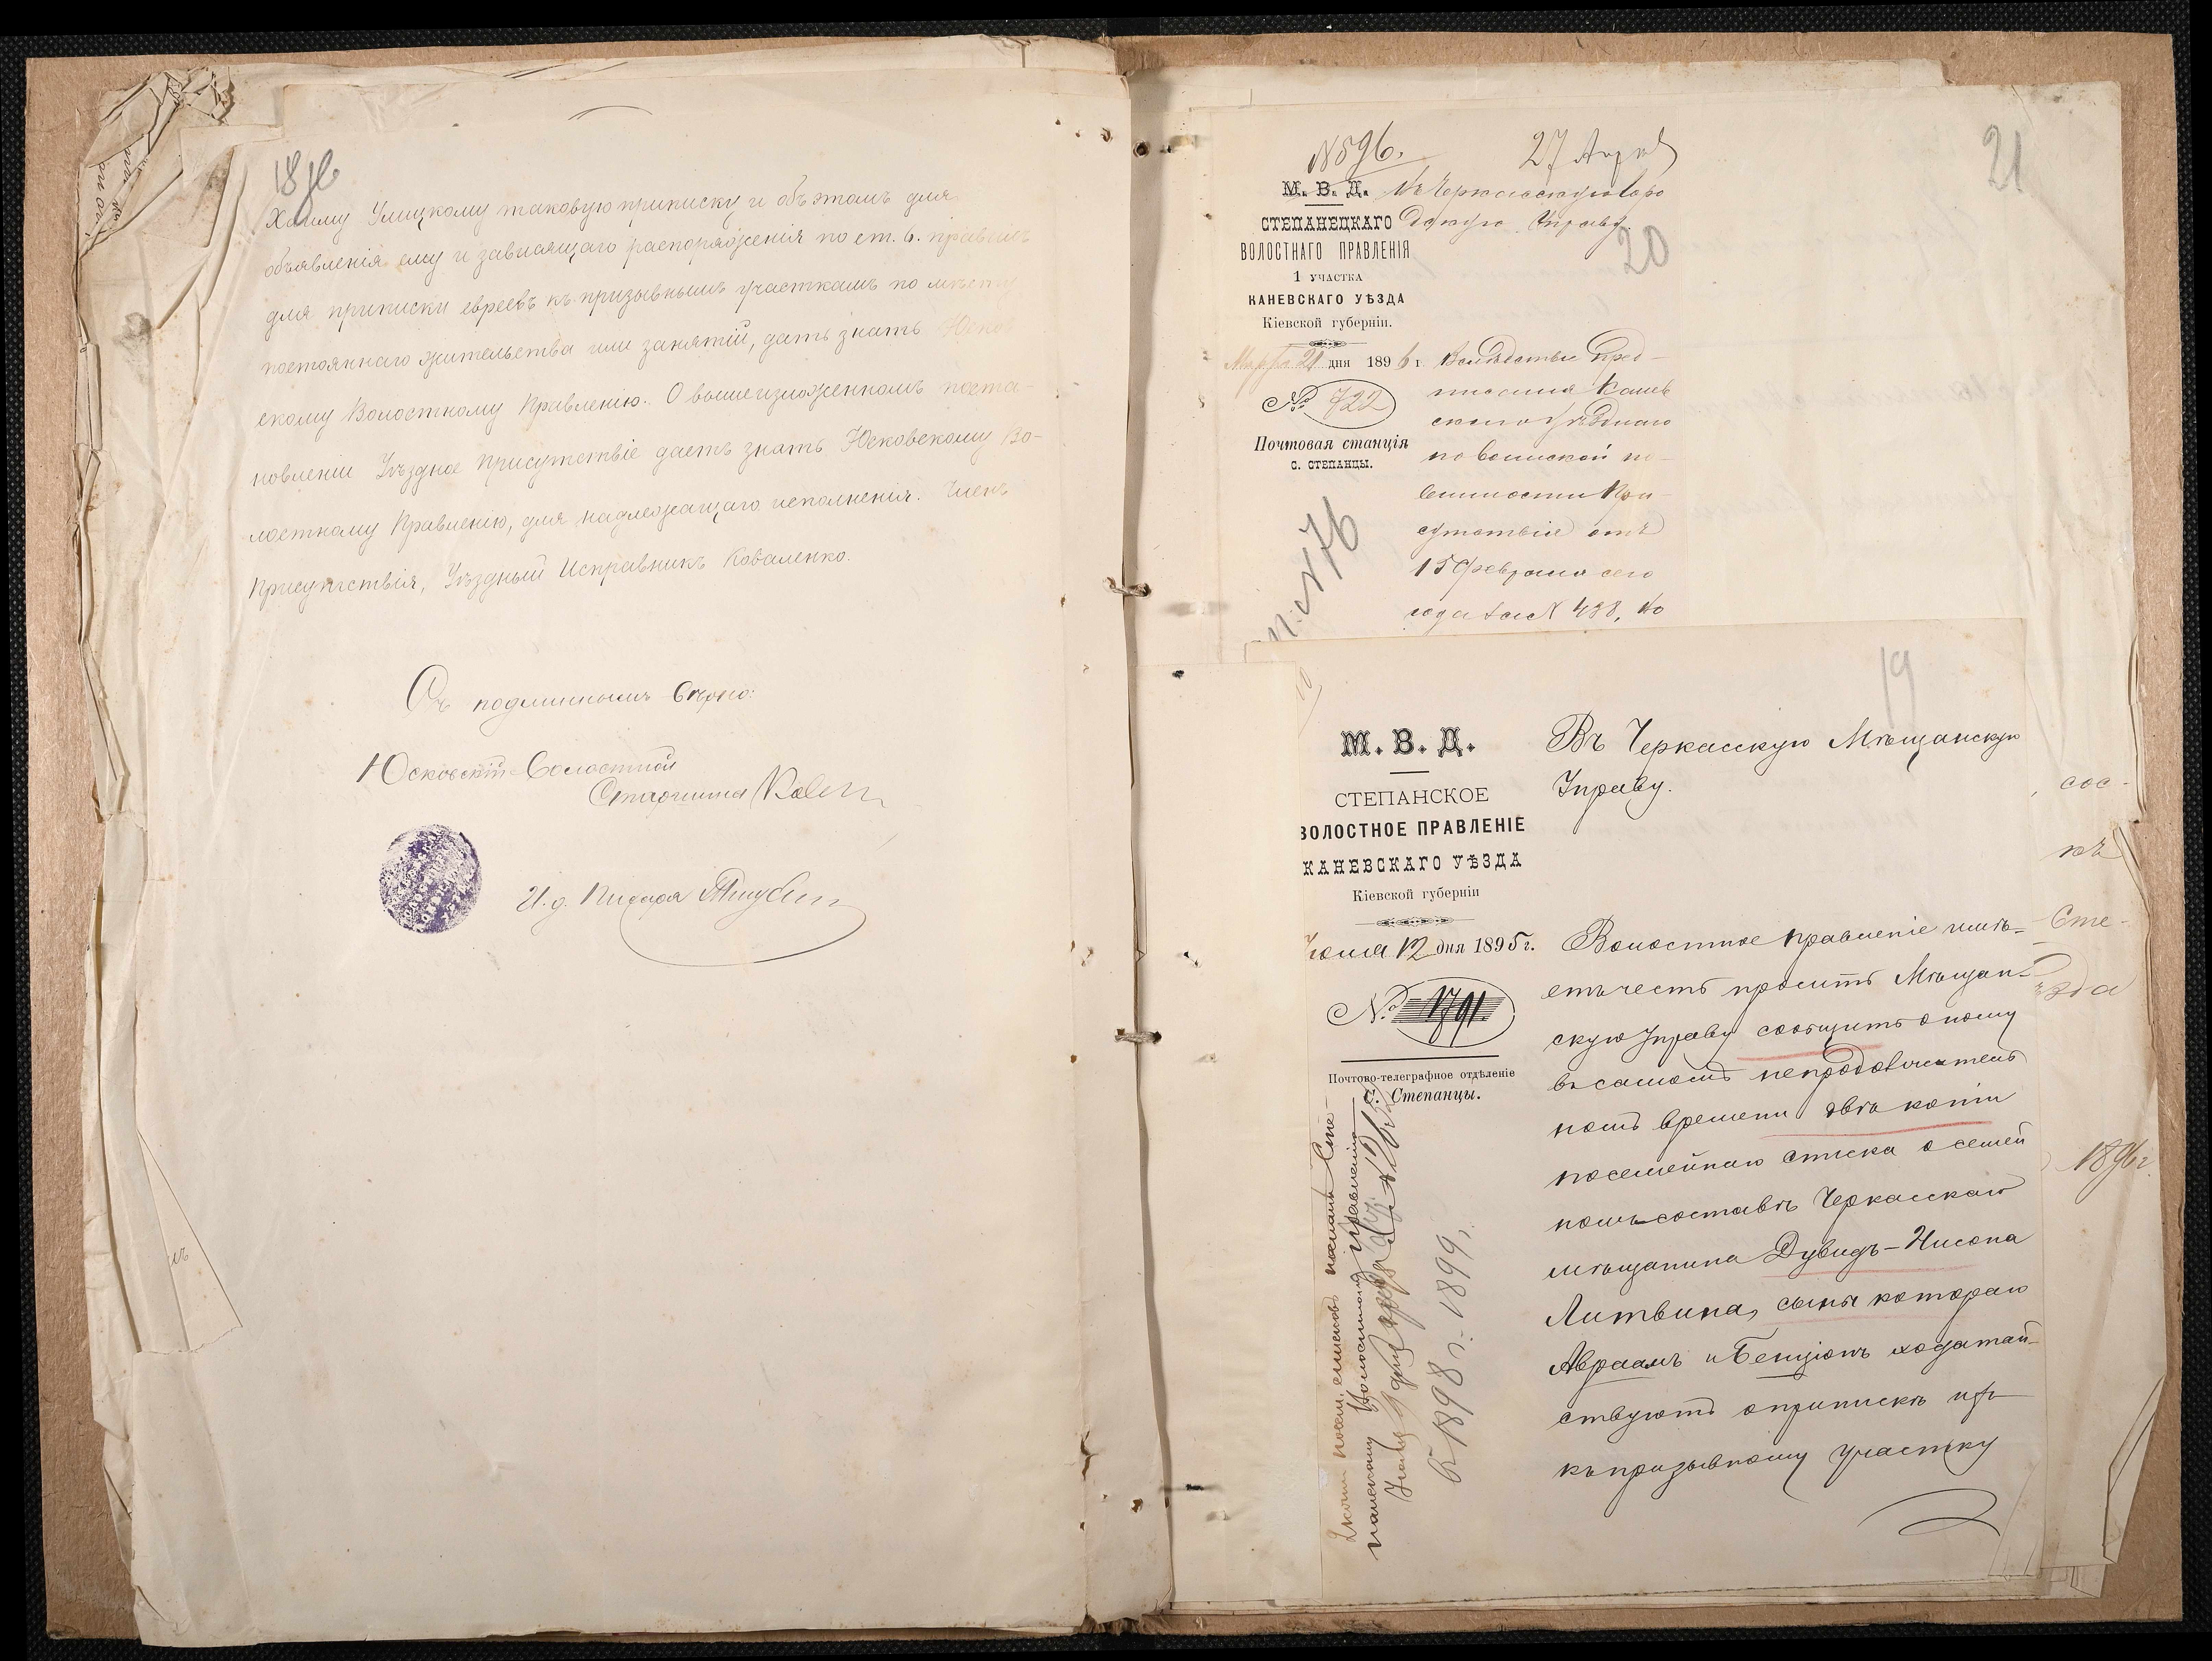 18 об
Хаиму Улицкому таковую приписку и объ этомъ для
объявленія ему и зависящаго распоряженія по ст. 6. правилъ
для приписки евреевъ къ призывнымъ участкамъ по мѣсту
постояннаго жительства или занятій, дать знать Юсков-
скому Волостному Правленію. О вышеизложенномъ поста-
новленіи Уѣздное Присутствіе даетъ знать Юсковскому Во-
лостному Правленію, для надлежащаго исполненія. Членъ
Присутствія, Уѣздный Исправникъ Коваленко.
Съ подлиннымъ вѣрно:
Юсковскій Волостной
Старшина
И.д. Писаря
N596. 27 Апрѣл
21
М. В. Д. Въ Черкасскую Горо
СТЕПАНЕЦКАГО дскую Управу.
ВОЛОСТНАГО ПРАВЛЕНІЯ
20
1 УЧАСТКА
КАНЕВСКАГО УѢЗДА
Кіевской губерніи.
Марта 21 дня 1896 г.
№ 722
Почтовая станція
С. СТЕПАНЦЫ.
Вслѣдствіе пред-
писанія Канев
скаго Уѣзднаго
по воинской по-
винности При-
сутствія отъ
15 Февраля сего
года за N 438, Во
19
М. В. Д.
СТЕПАНСКОЕ
ВОЛОСТНОЕ ПРАВЛЕНІЕ
КАНЕВСКАГО УѢЗДА
Кіевской губерніи
Іюля 12 дня 1895 г.
№ 1791.
Почтово-телеграфное отдѣленіе
С. Степанцы.
Въ Черкасскую Мѣщанскую
Управу.
Волостное правленіе имѣ-
етъ честь просить Мѣщан-
скую Управу сообщить оному
въ самомъ непродолжитель
номъ времени двѣ копіи
посемейнаго списка о семей
номъ составѣ Черкасскаго
мѣщанина Дувидъ-Нисона
Литвина, сыны котораго
Авраамъ и Бенціонъ ходатай-
ствуютъ о припискѣ ихъ
къ призывному участку
2 копіи посем. списковъ посланы Сте-
панскому Волостному Правленію
1898 г. 1899 г.
сос-
къ
Сте-
ѣзда
1896 г.